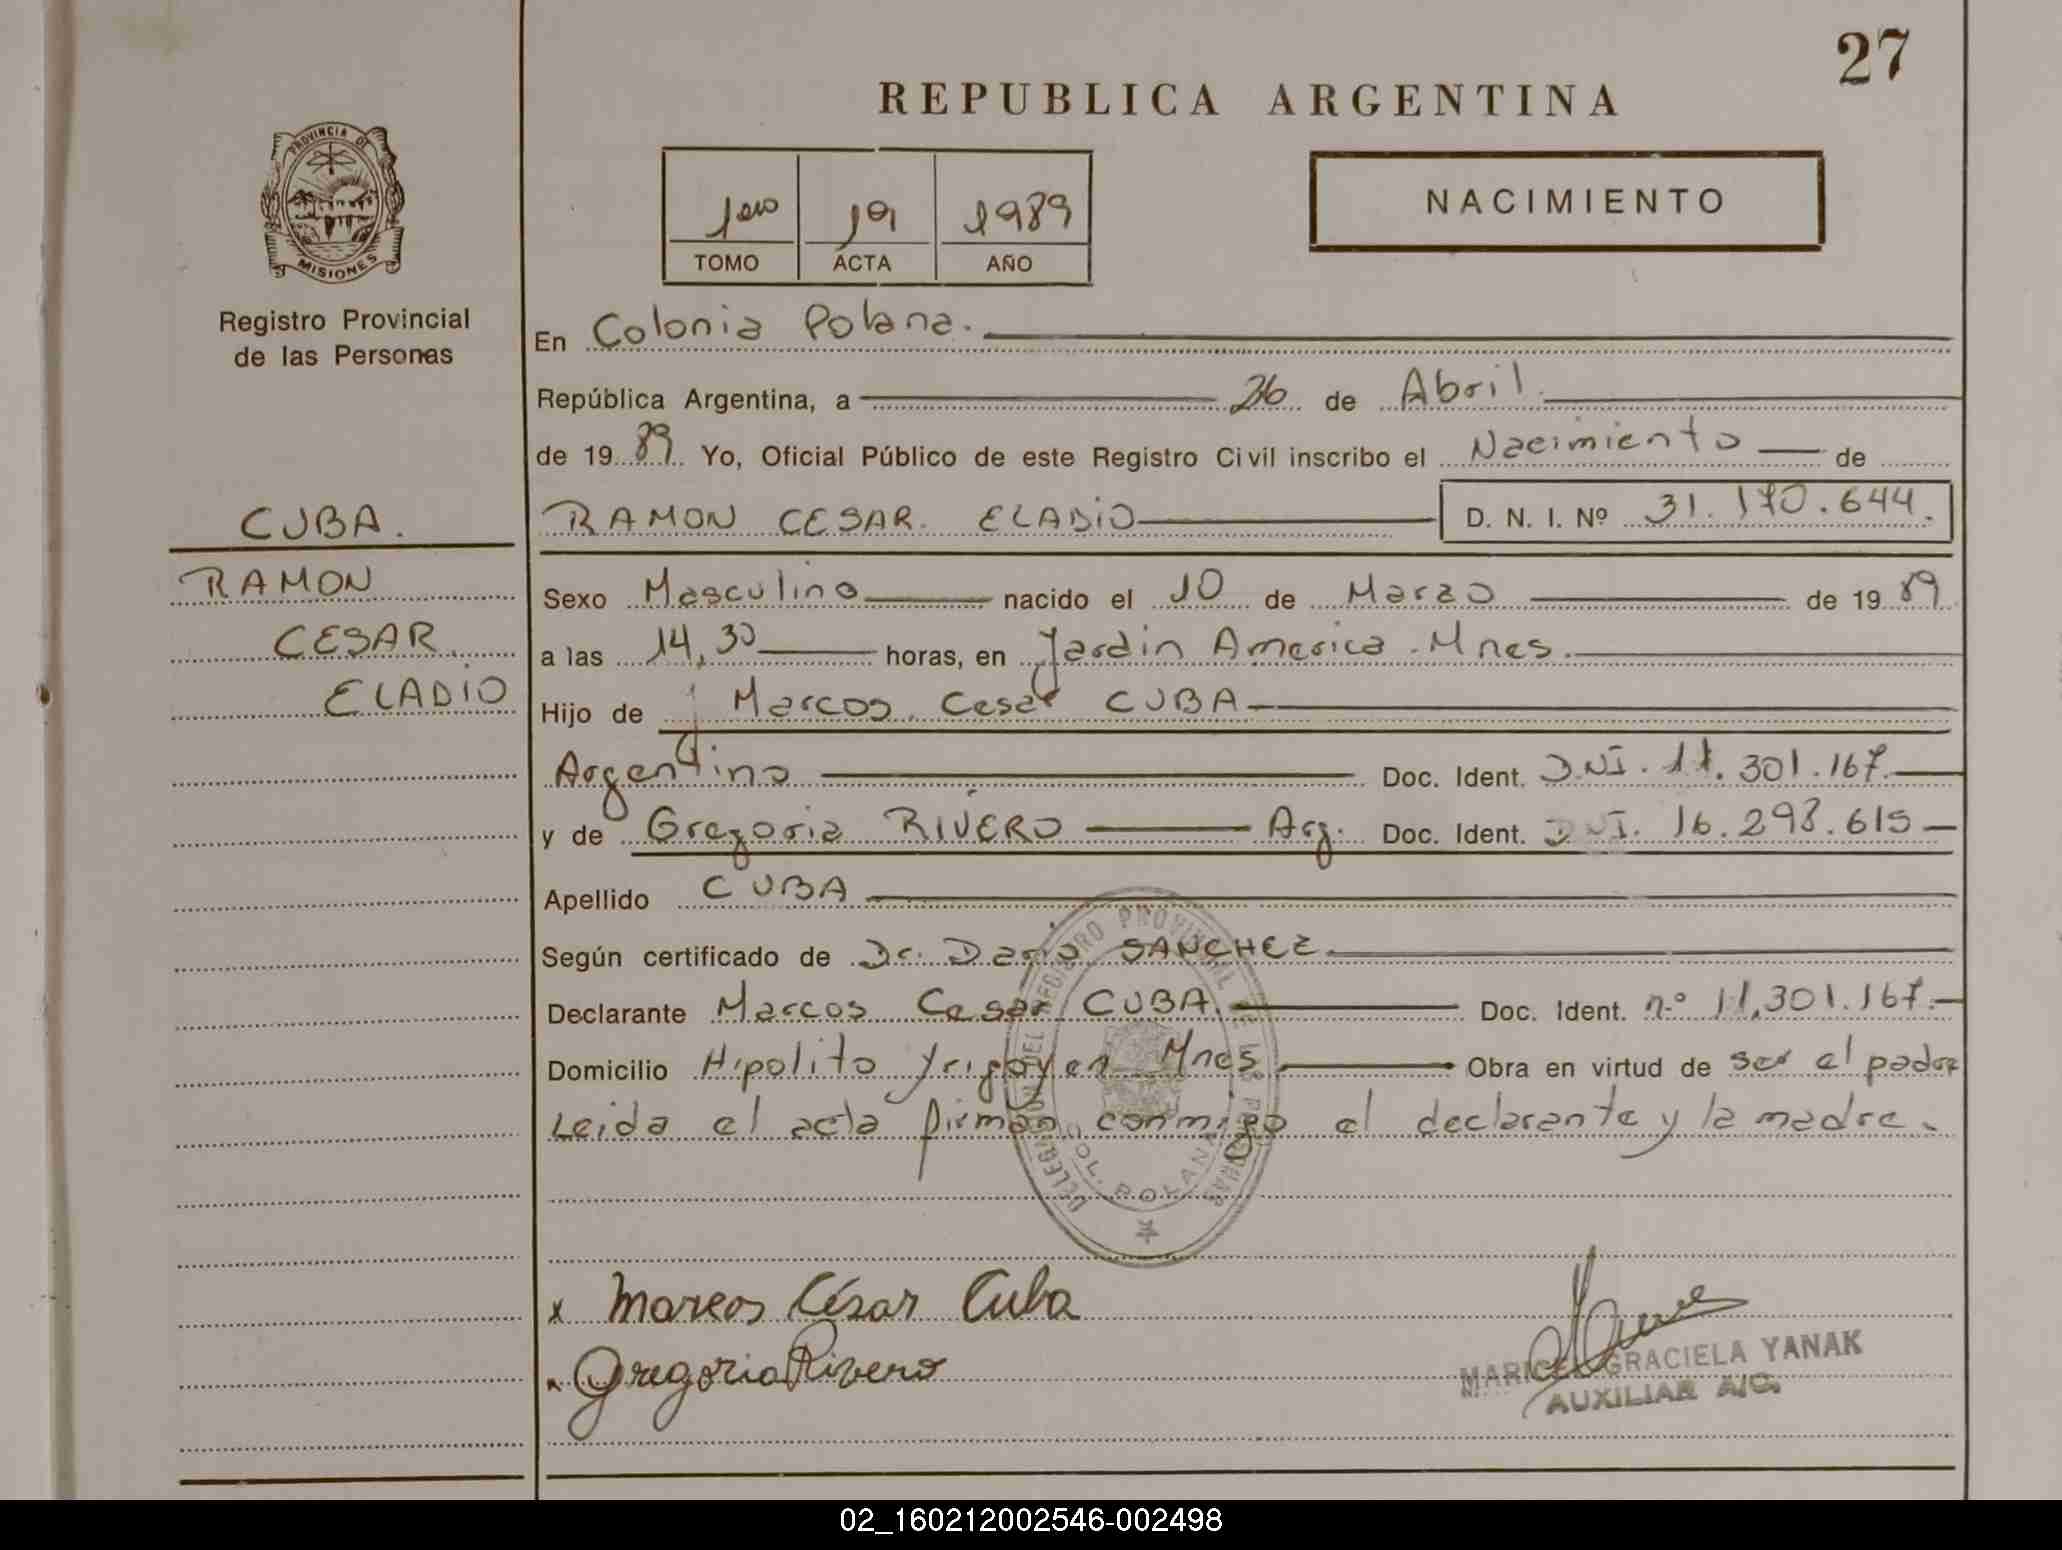 27
REPUBLICA ARGENTINA
PROVINCIA DE
MISIONES
Registro Provincial
de las Personas
1ero 19 1989
TOMO ACTA AÑO
NACIMIENTO
En Colonia Polana.
República Argentina, a 26 de Abril.
de 19 89 Yo, Oficial Público de este Registro Civil inscribo el Nacimiento de
CUBA.
RAMON CESAR. ELADIO D. N. I. Nº 31.170.644.
RAMON
CESAR.
ELADIO
Sexo Masculino nacido el 10 de Marzo de 19 89
a las 14,30 horas, en Jardin America. Mnes.
Hijo de Marcos Cesar CUBA
Argentino Doc. Ident. DNI. 11.301.167.
y de Gregoria RIVERO Arg. Doc. Ident. DNI. 16.298.615
Apellido CUBA
Según certificado de Dr. Dario SANCHEZ
Declarante Marcos Cesar CUBA. Doc. Ident. n.º 11,301.167.
Domicilio Hipolito Yrigoyen Mnes Obra en virtud de ser el padre
Leida el acta firman conmigo el declarante y la madre.
DELEGACION DEL REGISTRO PROVINCIAL DE LAS PERSONAS
COL. POLANA
x Marcos César Cuba
Gregoria Rivero
MARICEL GRACIELA YANAK
AUXILIAR A/C.
02_160212002546-002498